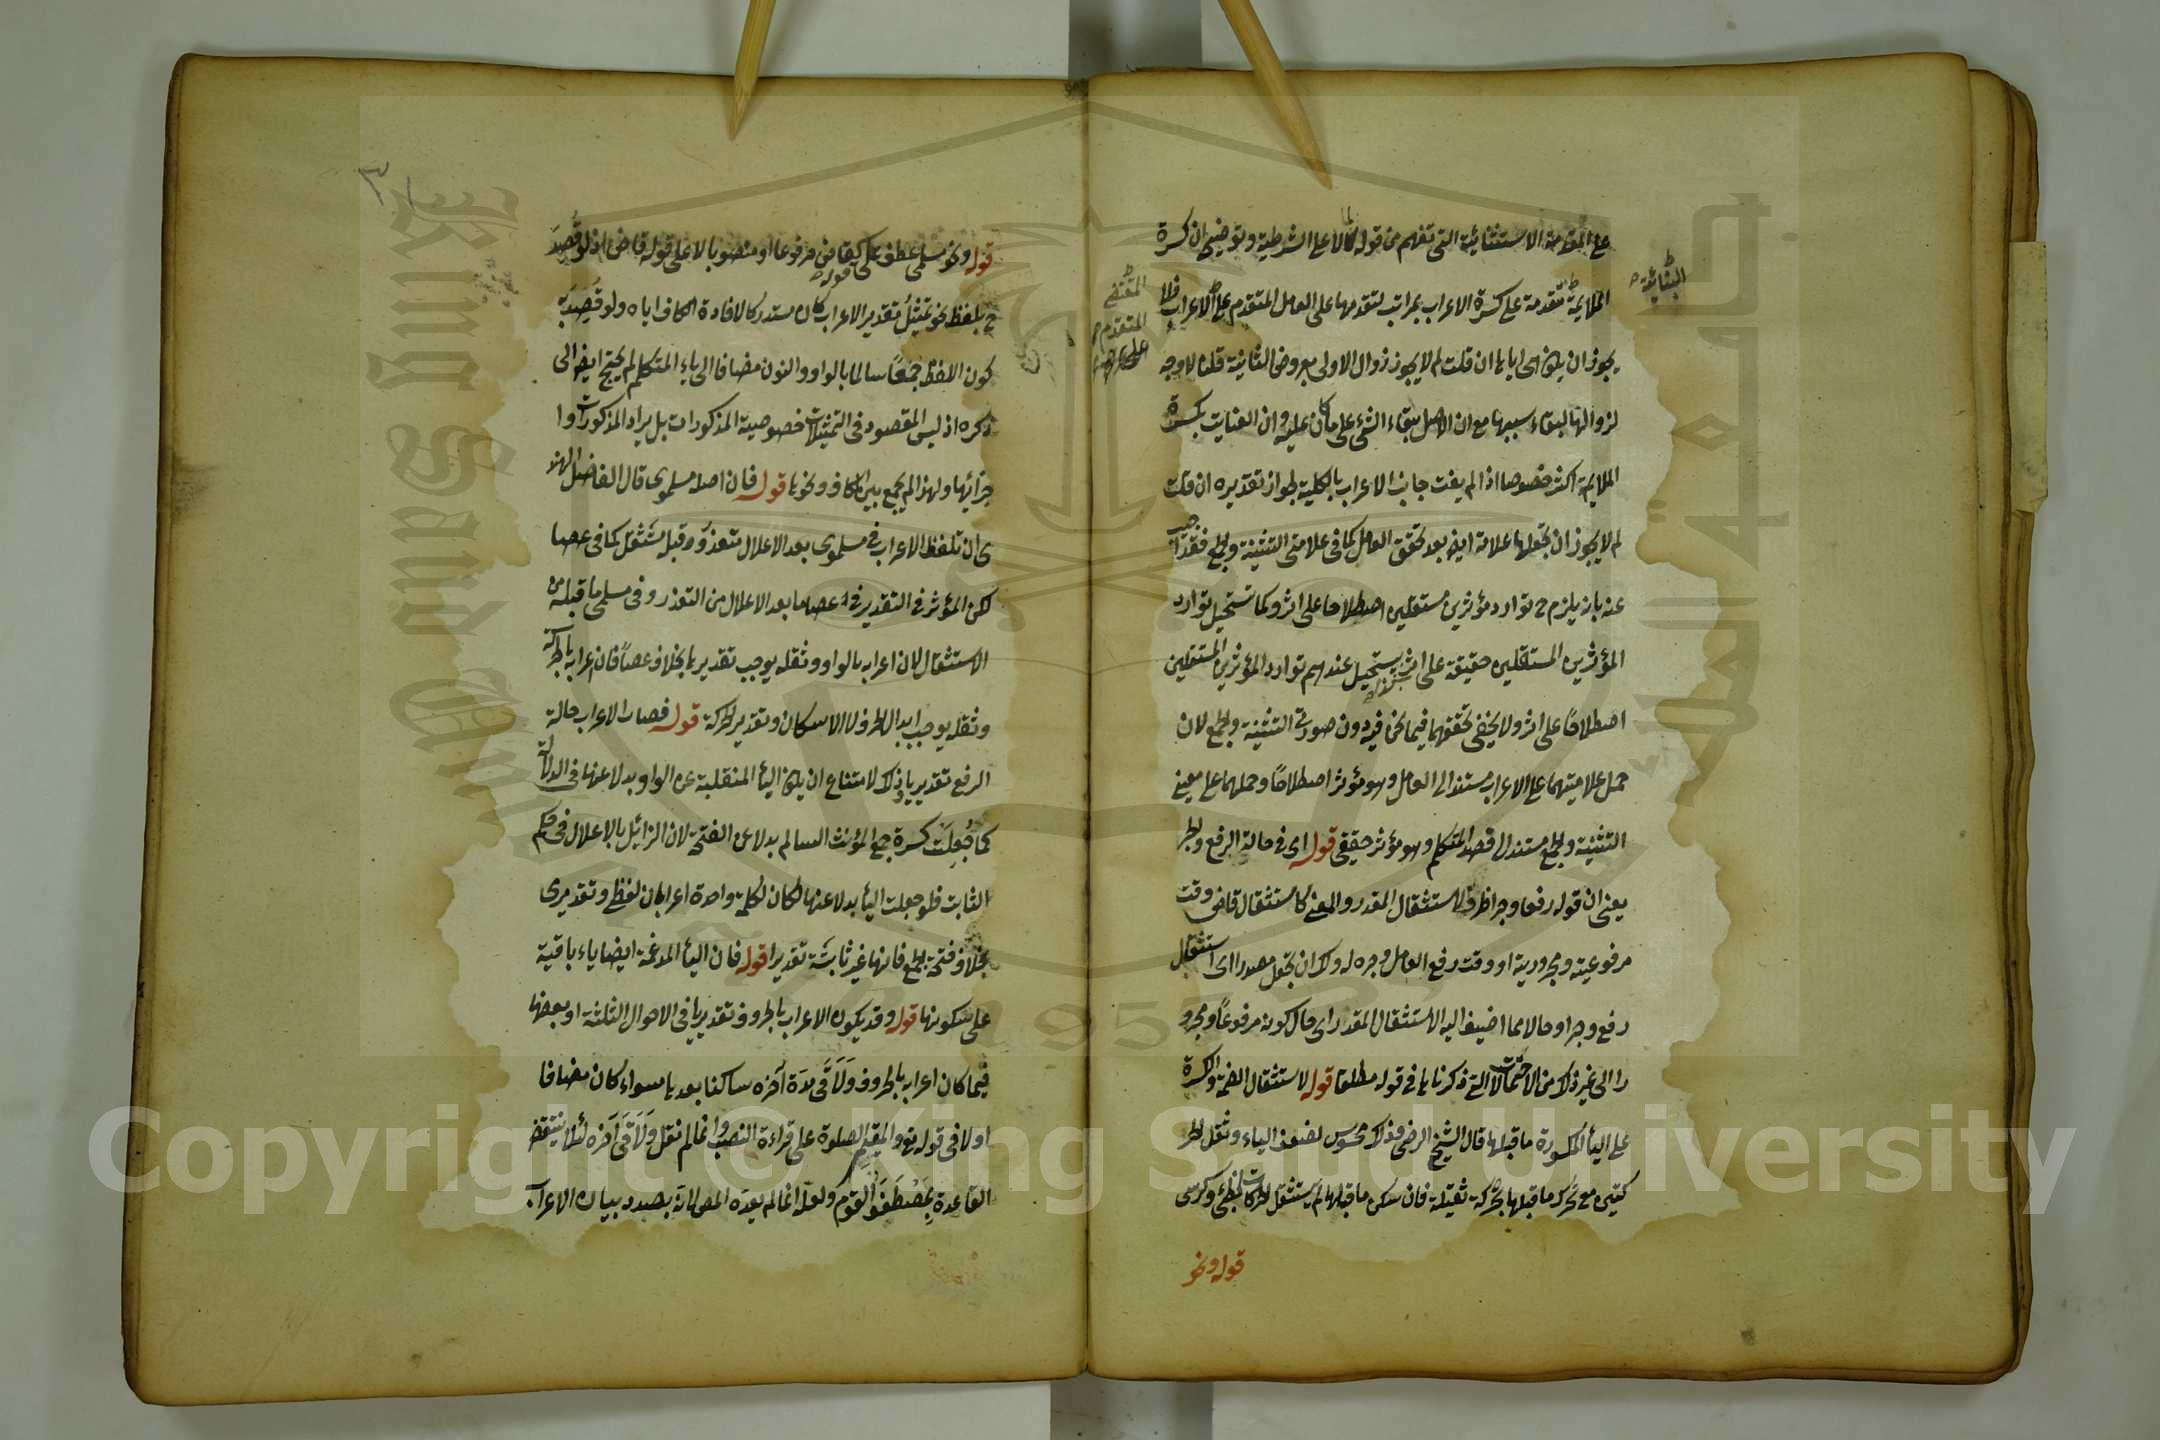 على المقدمة الاستثنائية التى تفهم من قوله لما لا على الشرطية وتوضيحه ان كسرة
الملايمة متقدمة على كسرة الاعراب بمراتب لتقدمها على العامل المتقدم على الاعراب فلا
يجوز ان يكون اياها ان قلت لم لا يجوز زوال الاولى بعروض الثانية قلنا لا وجه
لزوالها لبقاء سببها مع ان الاصل بقاء الشئ على ما كان عليه وان العناية بكسرة
الملايمة اكثر خصوصا اذا لم يفت جانب الاعراب بالكلية لجواز تقديره ان قلت
لم لا يجوز ان تجعلها علامة ايضا بعد تحقق العامل كما فى علامتى التثنية والجمع فقد اجيب
عنه بانه يلزم ح توارد مؤثرين مستقلين اصطلاحا على اثر وكما تستحيل توارد
المؤثرين المستقلين حقيقة على اثر يستحيل عندهم توارد المؤثرين المستقلين
اصطلاحا على اثر ولا يخفى تحققهما فيما نحن فيه دون صورتى التثنية والجمع لان
حمل علامتيهما على الاعراب مستند الى العامل وهو مؤثر اصطلاحا وحملهما على معنى
التثنية والجمع مستند الى قصد المتكلم وهو مؤثر حقيقى قوله اى فى حالة الرفع والجر
يعنى ان قوله رفعا وجرا ظرف لاستثقال المقدر والمعنى كاستثقال قاض وقت
مرفوعيته ومجروريته او وقت رفع العامل وجره له ولك ان تجعل مصدرا اى استثقال
رفع وجر او حالا مما اضيف اليه الاستثقال المقدر اى حال كونه مرفوعا ومجرو
را الى غير ذلك من الاحتمالات التى ذكرناها فى قوله مطلقا قوله لاستثقال الضمة والكسرة
على الياء المكسورة ما قبلها قال الشيخ الرضى وذلك محسوس لضعف الياء وثقل الحر
كتين مع تحرك ما قبلها بحركة ثقيلة فان سكن ما قبلها لم يستثقل الحركات كظبى وكرسى
قوله ونحو
قوله ونحو مسلمى عطف على كقاض مرفوعا او منصوبا لا على قوله قاض اذ لو قصد
ح بلفظ نحو تمثيل تقدير الاعراب كان مستدركا لافادة الكاف اياه ولو قصد به
كون اللفظ جمعا سالما بالواو والنون مضافا الى ياء المتكلم لم يحتج ايضا الى
ذكره اذ ليس المقصود فى التمثيلات خصوصية المذكورات بل يراد المذكورات وا
جزائها ولهذا لم يجمع بين الكاف ونحوها قوله فان اصله مسلموى قال الفاضل الهند
ى ان تلفظ الاعراب فى مسلموى بعد الاعلال متعذر وقبله مستثقل كما فى عصا
لكن المؤثر فى التقدير فى عصا ما بعد الاعلال من التعذر وفى مسلمى ما قبله من
الاستثقال لان اعرابه بالواو وثقله يوجب تقديرها بخلاف عصا فان اعرابه بالحركة
وثقله يوجب ابدال الحرف لا الاسكان وتقدير الحركة قوله فصار الاعراب حالة
الرفع تقديريا وذلك لامتناع ان يكون الياء المنقلبة عن الواو بدلا عنها فى الدلالة
كما جعلت كسرة جمع المؤنث السالم بدلا عن الفتحة لان الزائل بالاعلال فى حكم
الثابت فلو جعلت الياء بدلا عنها لكان لكلمة واحدة اعرابان لفظى وتقديرى
بخلاف فتحة الجمع فانها غير ثابتة تقديرا قوله فان الياء المدغمة ايضا ياء باقية
على سكونها قوله وقد يكون الاعراب بالحروف تقديريا فى الاحوال الثلثة او بعضها
فيما كان اعرابه بالحروف ولاقى مدة آخره ساكنا بعدها سواء كان مضافا
او لا فى قوله تع والمقيم الصلوة على قراءة النصب وانما لم نقل ولاقى آخره لئلا ينتقض
القاعدة بمصطفو القوم ولعله انما لم يعده المص لانه بصدد بيان الاعرا